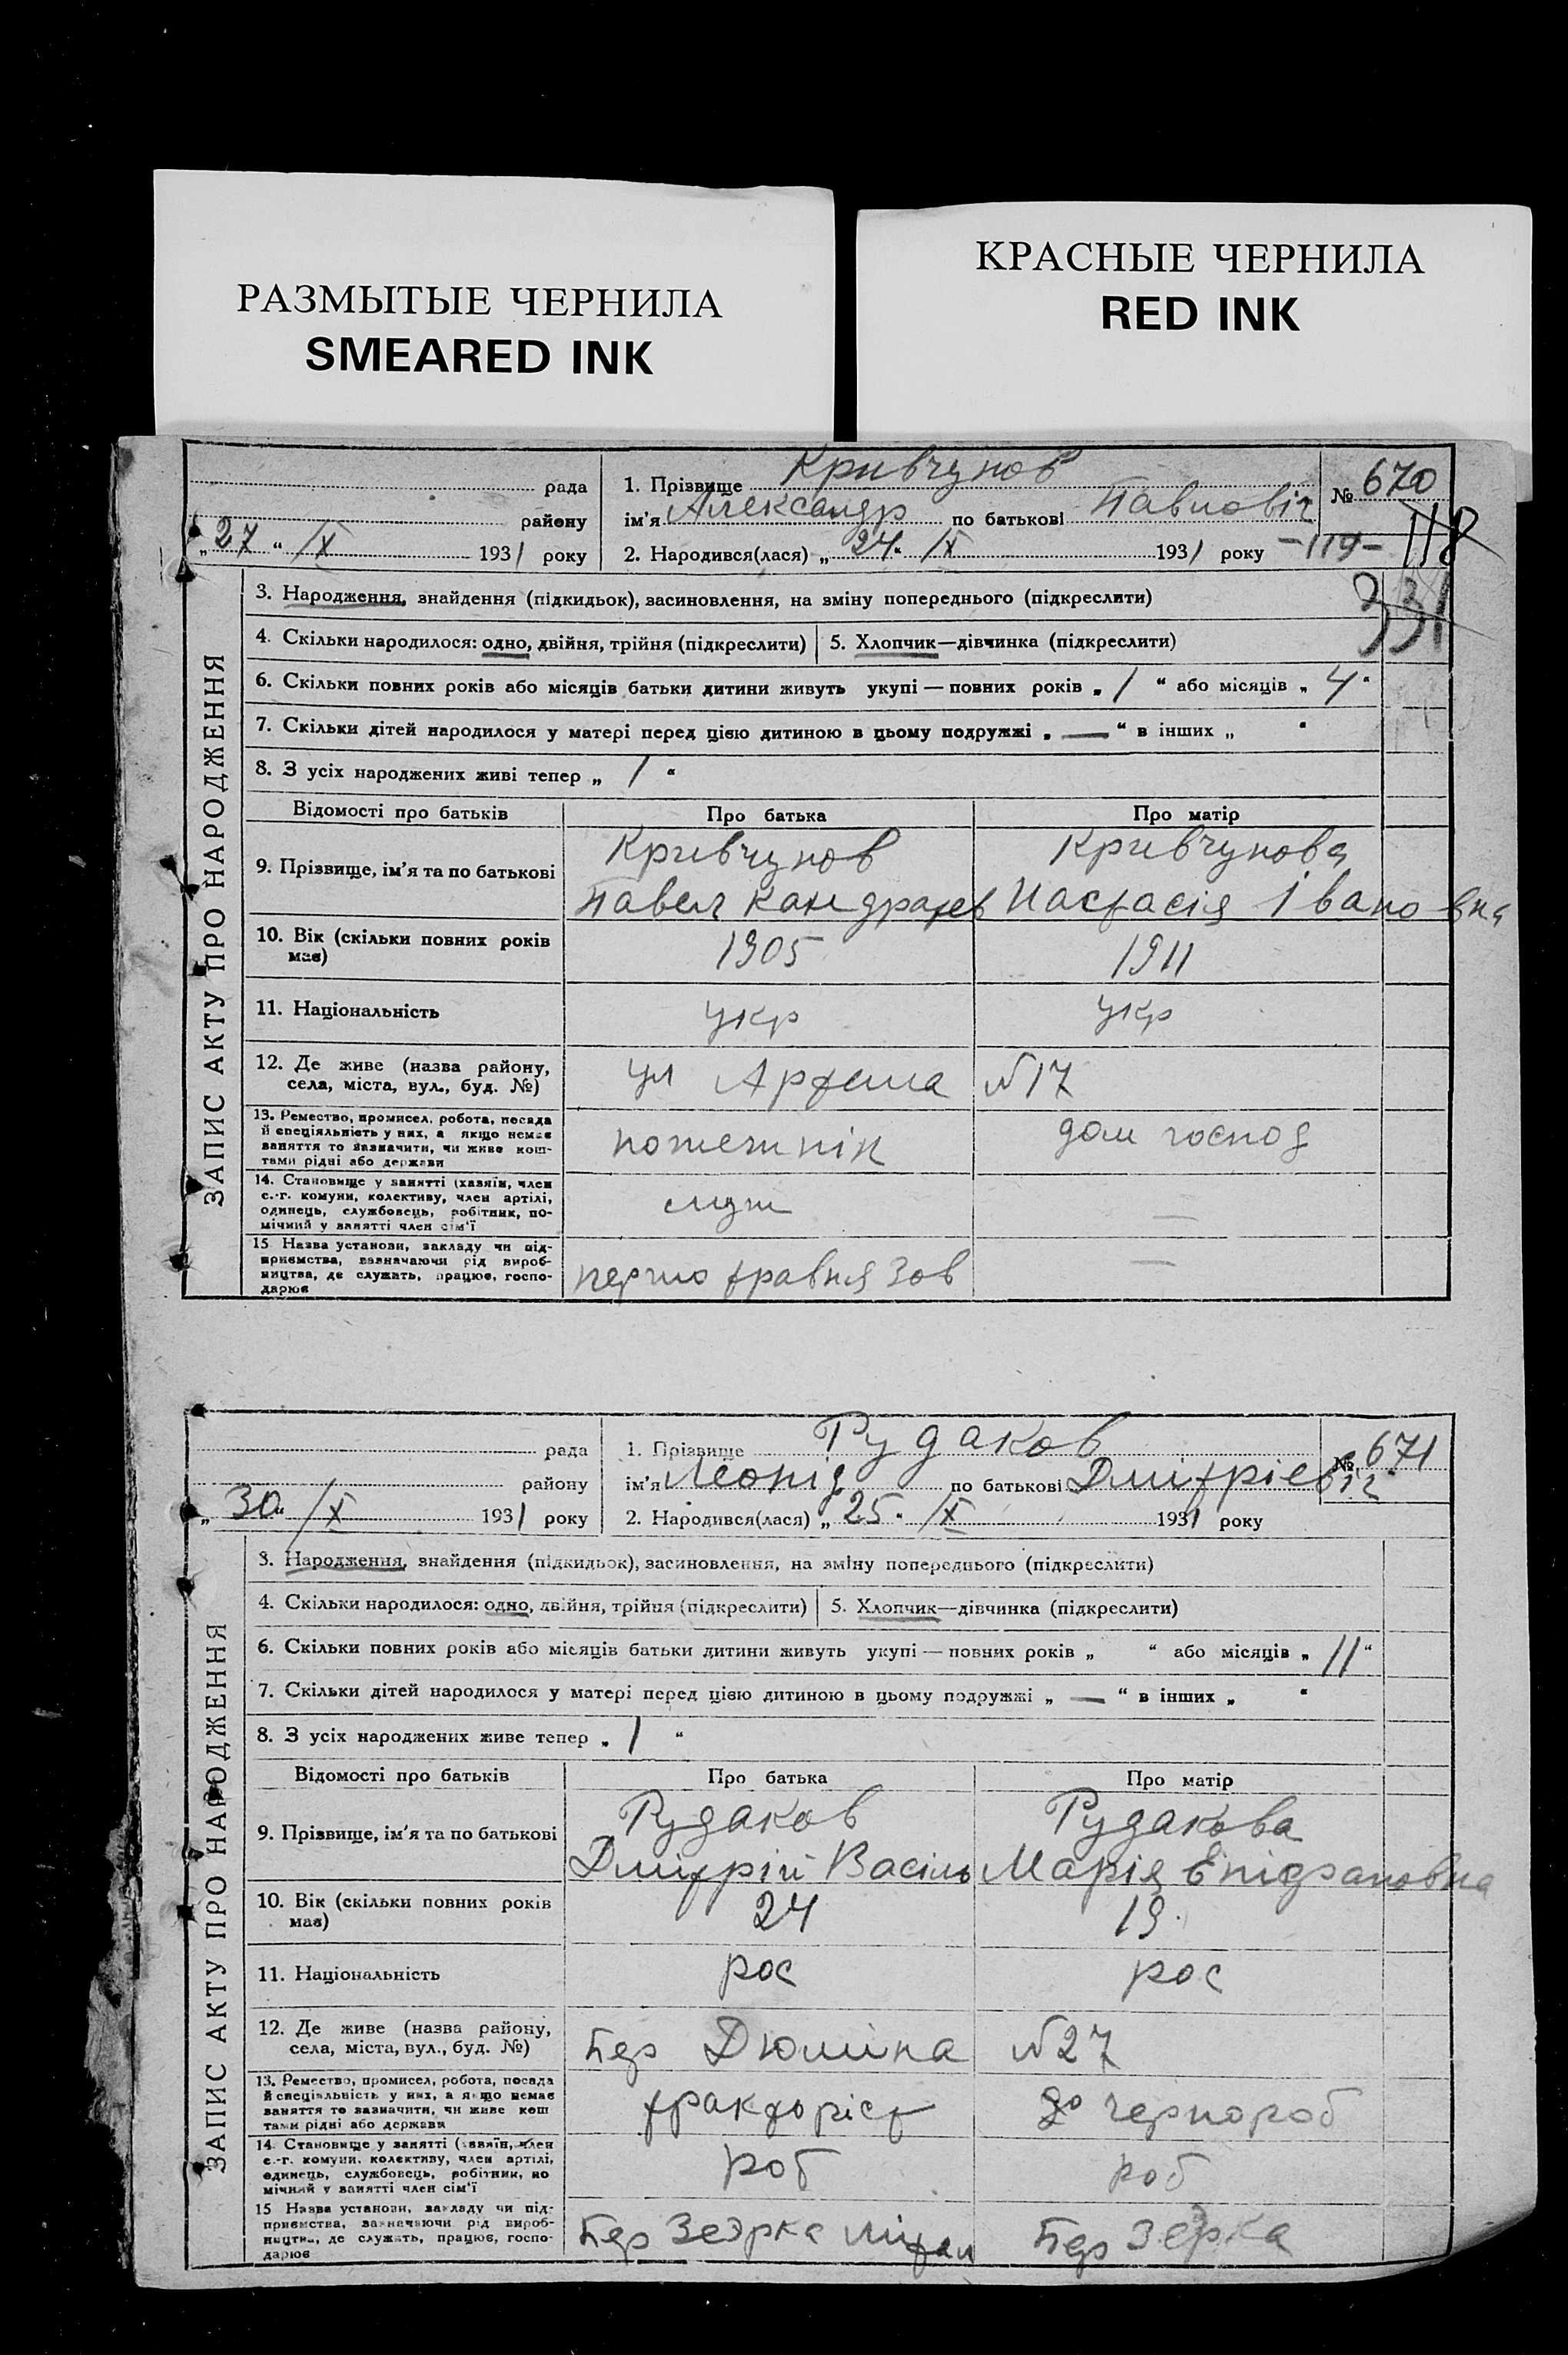 РАЗМЫТЫЕ ЧЕРНИЛА
SMEARED INK
КРАСНЫЕ ЧЕРНИЛА
RED INK
рада
району
„27“ IX 1931 року
1. Прізвище Кривчунов
ім'я Александр по батькові Павловіч
2. Народився(лася) „24“ IX 1931 року
№ 670
118
-119-
331
ЗАПИС АКТУ ПРО НАРОДЖЕННЯ
3. Народження, знайдення (підкидьок), засиновлення, на зміну попереднього (підкреслити)
4. Скільки народилося: одно, двійня, трійня (підкреслити) 5. Хлопчик—дівчинка (підкреслити)
6. Скільки повних років або місяців батьки дитини живуть укупі — повних років „1“ або місяців „4“
7. Скільки дітей народилося у матері перед цією дитиною в цьому подружжі „—“ в інших „ “
8. З усіх народжених живі тепер „1“
Відомості про батьків Про батька Про матір
9. Прізвище, ім'я та по батькові
Кривчунов Кривчунова
Павел Кандратев Настасія Івановна
10. Вік (скільки повних років має) 1905 1911
11. Національність укр укр
12. Де живе (назва району, села, міста, вул., буд. №) ул Артема №17
13. Ремество, промисел, робота, посада
й спеціяльність у них, а якщо немає
заняття то зазначити, чи живе кош-
тами рідні або держави
дом господ
14. Становище у занятті (хазяїн, член
с.-г. комуни, колективу, член артілі,
одинець, службовець, робітник, по-
мічний у занятті член сім'ї
служ —
15 Назва установи, закладу чи під-
приємства, зазначаючи рід вироб-
ництва, де служить, працює, госпо-
дарює
першо травня Зав —
рада
району
„30“ IX 1931 року
1. Прізвище Рудаков
ім'я Леонід по батькові Дмітрієвіч
2. Народився(лася) „25“ IX 1931 року
№ 671
ЗАПИС АКТУ ПРО НАРОДЖЕННЯ
3. Народження, знайдення (підкидьок), засиновлення, на зміну попереднього (підкреслити)
4. Скільки народилося: одно, двійня, трійня (підкреслити) 5. Хлопчик—дівчинка (підкреслити)
6. Скільки повних років або місяців батьки дитини живуть укупі — повних років „ “ або місяців „11“
7. Скільки дітей народилося у матері перед цією дитиною в цьому подружжі „—“ в інших „ “
8. З усіх народжених живе тепер „1“
Відомості про батьків Про батька Про матір
9. Прізвище, ім'я та по батькові
Рудаков Рудакова
Дмітрій Васіль Марія
10. Вік (скільки повних років має) 24 19
11. Національність рос рос
12. Де живе (назва району, села, міста, вул., буд. №) Дюміна №27
13. Ремество, промисел, робота, посада
й спеціяльність у них, а якщо немає
заняття то зазначити, чи живе кош
тами рідні або держави
тракторіст чернороб
14. Становище у занятті (хазяїн, член
с.-г. комуни, колективу, член артілі,
одинець, службовець, робітник, по
мічний у занятті член сім'ї
роб роб
15 Назва установи, закладу чи під-
приємства, зазначаючи рід вироб-
ництва, де служить, працює, госпо-
дарює